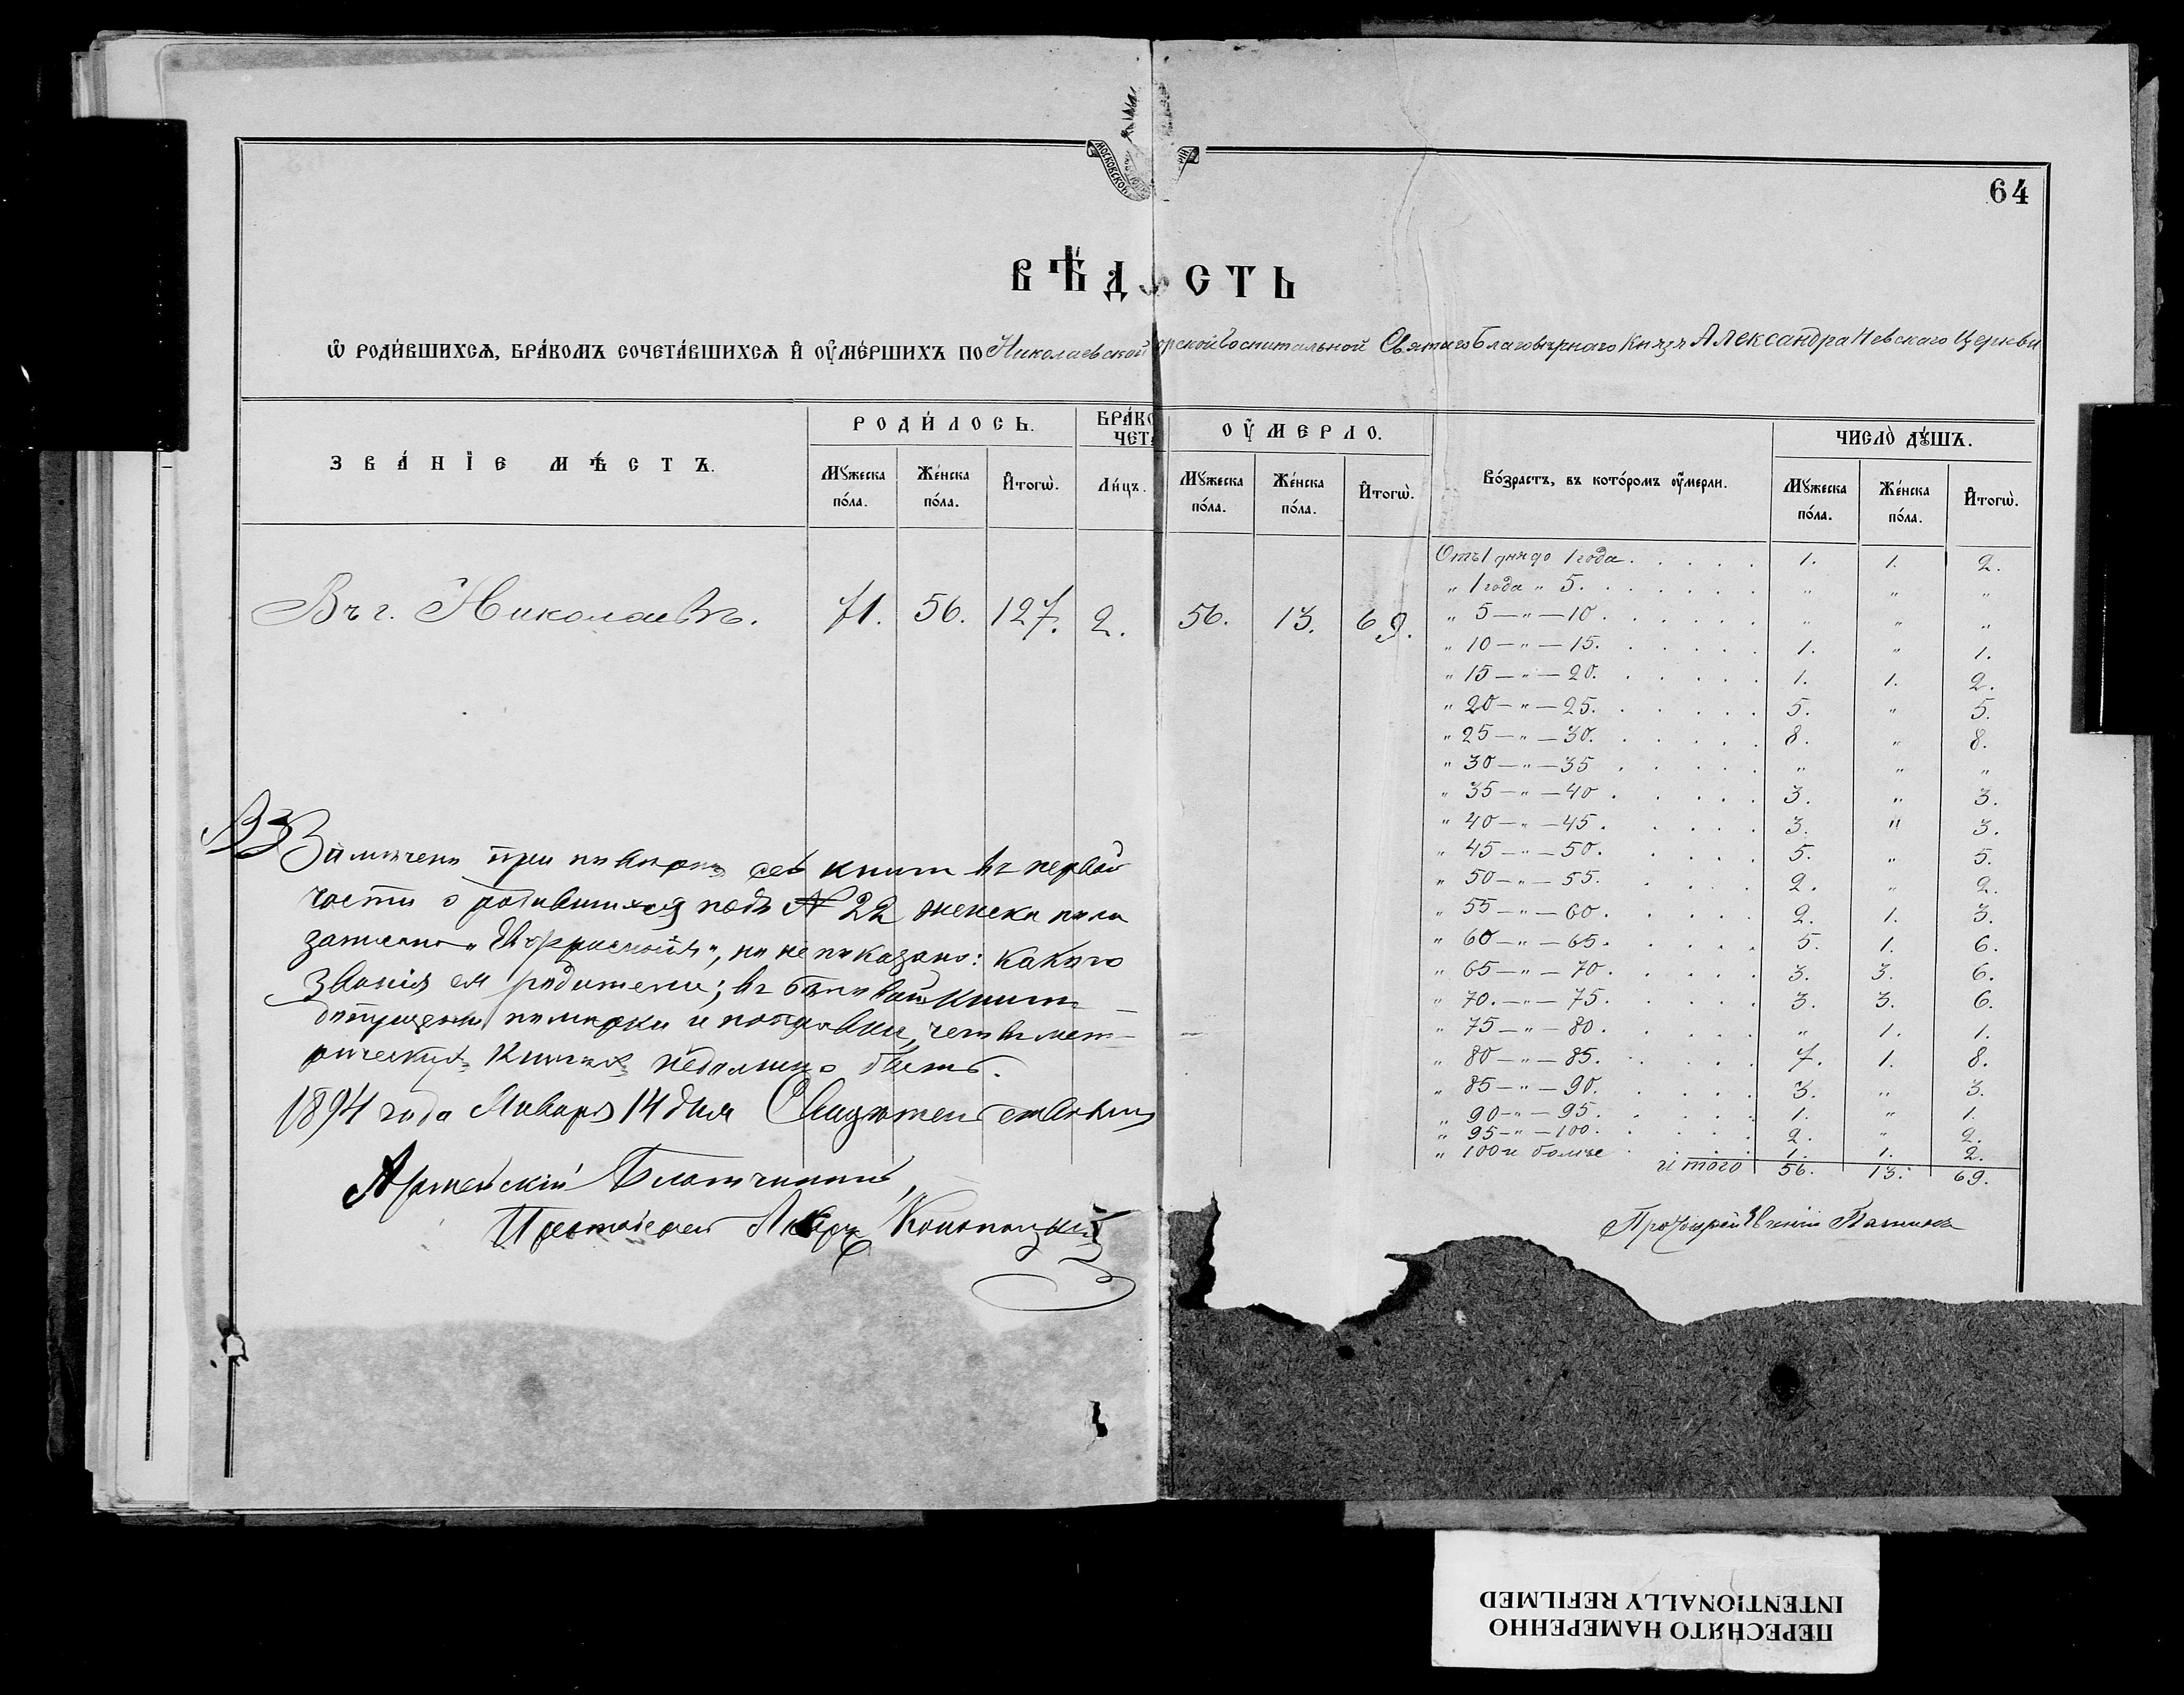 64
ВѢДОСТЬ
Ѡ РОДИ́ВШИХСѦ, БРА́КОМЪ СОЧЕТА́ВШИХСѦ Й ОУ҆МЕ́РШИХЪ ПО Николаевской Морской Госпитальной Святаго Благовѣрнаго Князя Александра Невскаго Церкви
ЗВА́НЇЕ МѢ́СТЪ.
РОДИ́ЛОСЬ.
Мꙋ́жеска по́ла. Же́нска по́ла. И҆тогѡ̀.
БРА́КО
ЧЕТА
Ли́цъ.
ОУ҆МЕРЛО.
Мꙋ́жеска по́ла. Же́нска по́ла. И҆тогѡ̀.
Во́зрастъ, въ кото́ромъ оу҆мерли.
ЧИСЛО̀ ДꙊ́ШЪ.
Мꙋ́жеска по́ла. Же́нска по́ла. И҆тогѡ̀.
Въ г. Николаевѣ. 71. 56. 127. 2. 56. 13. 69.
Отъ 1 дня до 1 года 1. 1. 2.
" 1 года " 5. " " "
" 5 — " — 10. " " "
" 10 — " — 15. 1. " 1.
" 15 — " — 20. 1. 1. 2.
" 20 — " — 25. 5. " 5.
" 25 — " — 30. 8. " 8.
" 30 — " — 35 " " "
" 35 — " — 40. 3. " 3.
" 40 — " — 45. 3. " 3.
" 45 — " — 50. 5. " 5.
" 50 — " — 55. 2. " 2.
" 55 — " — 60. 2. 1. 3.
" 60 — " — 65. 5. 1. 6.
" 65 — " — 70. 3. 3. 6.
" 70. — " — 75. 3. 3. 6.
" 75 — " — 80. " 1. 1.
" 80 — " — 85. 7. 1. 8.
" 85 — " — 90. 3. " 3.
" 90 — " — 95. 1. " 1.
" 95 — " — 100. 2. " 2.
" 100 и болѣе 1. 1. 2.
Итого 56. 13. 69.
Протоіерей Евгеній
Замѣчено при сей книги въ первой
части о родившихся подъ № 22 женска пола
записано „ ", но не показано: какого
званія ея родители; въ книгѣ
допущены помарки и поправки, чего въ мет-
рическихъ книгахъ недолжно быть.
1894 года Января 14 дня
Армейскій Благочинный,
Протоіерей
МОСКОВСКОЙ
ПЕРЕСНЯТО НАМЕРЕННО
INTENTIONALLY REFILMED